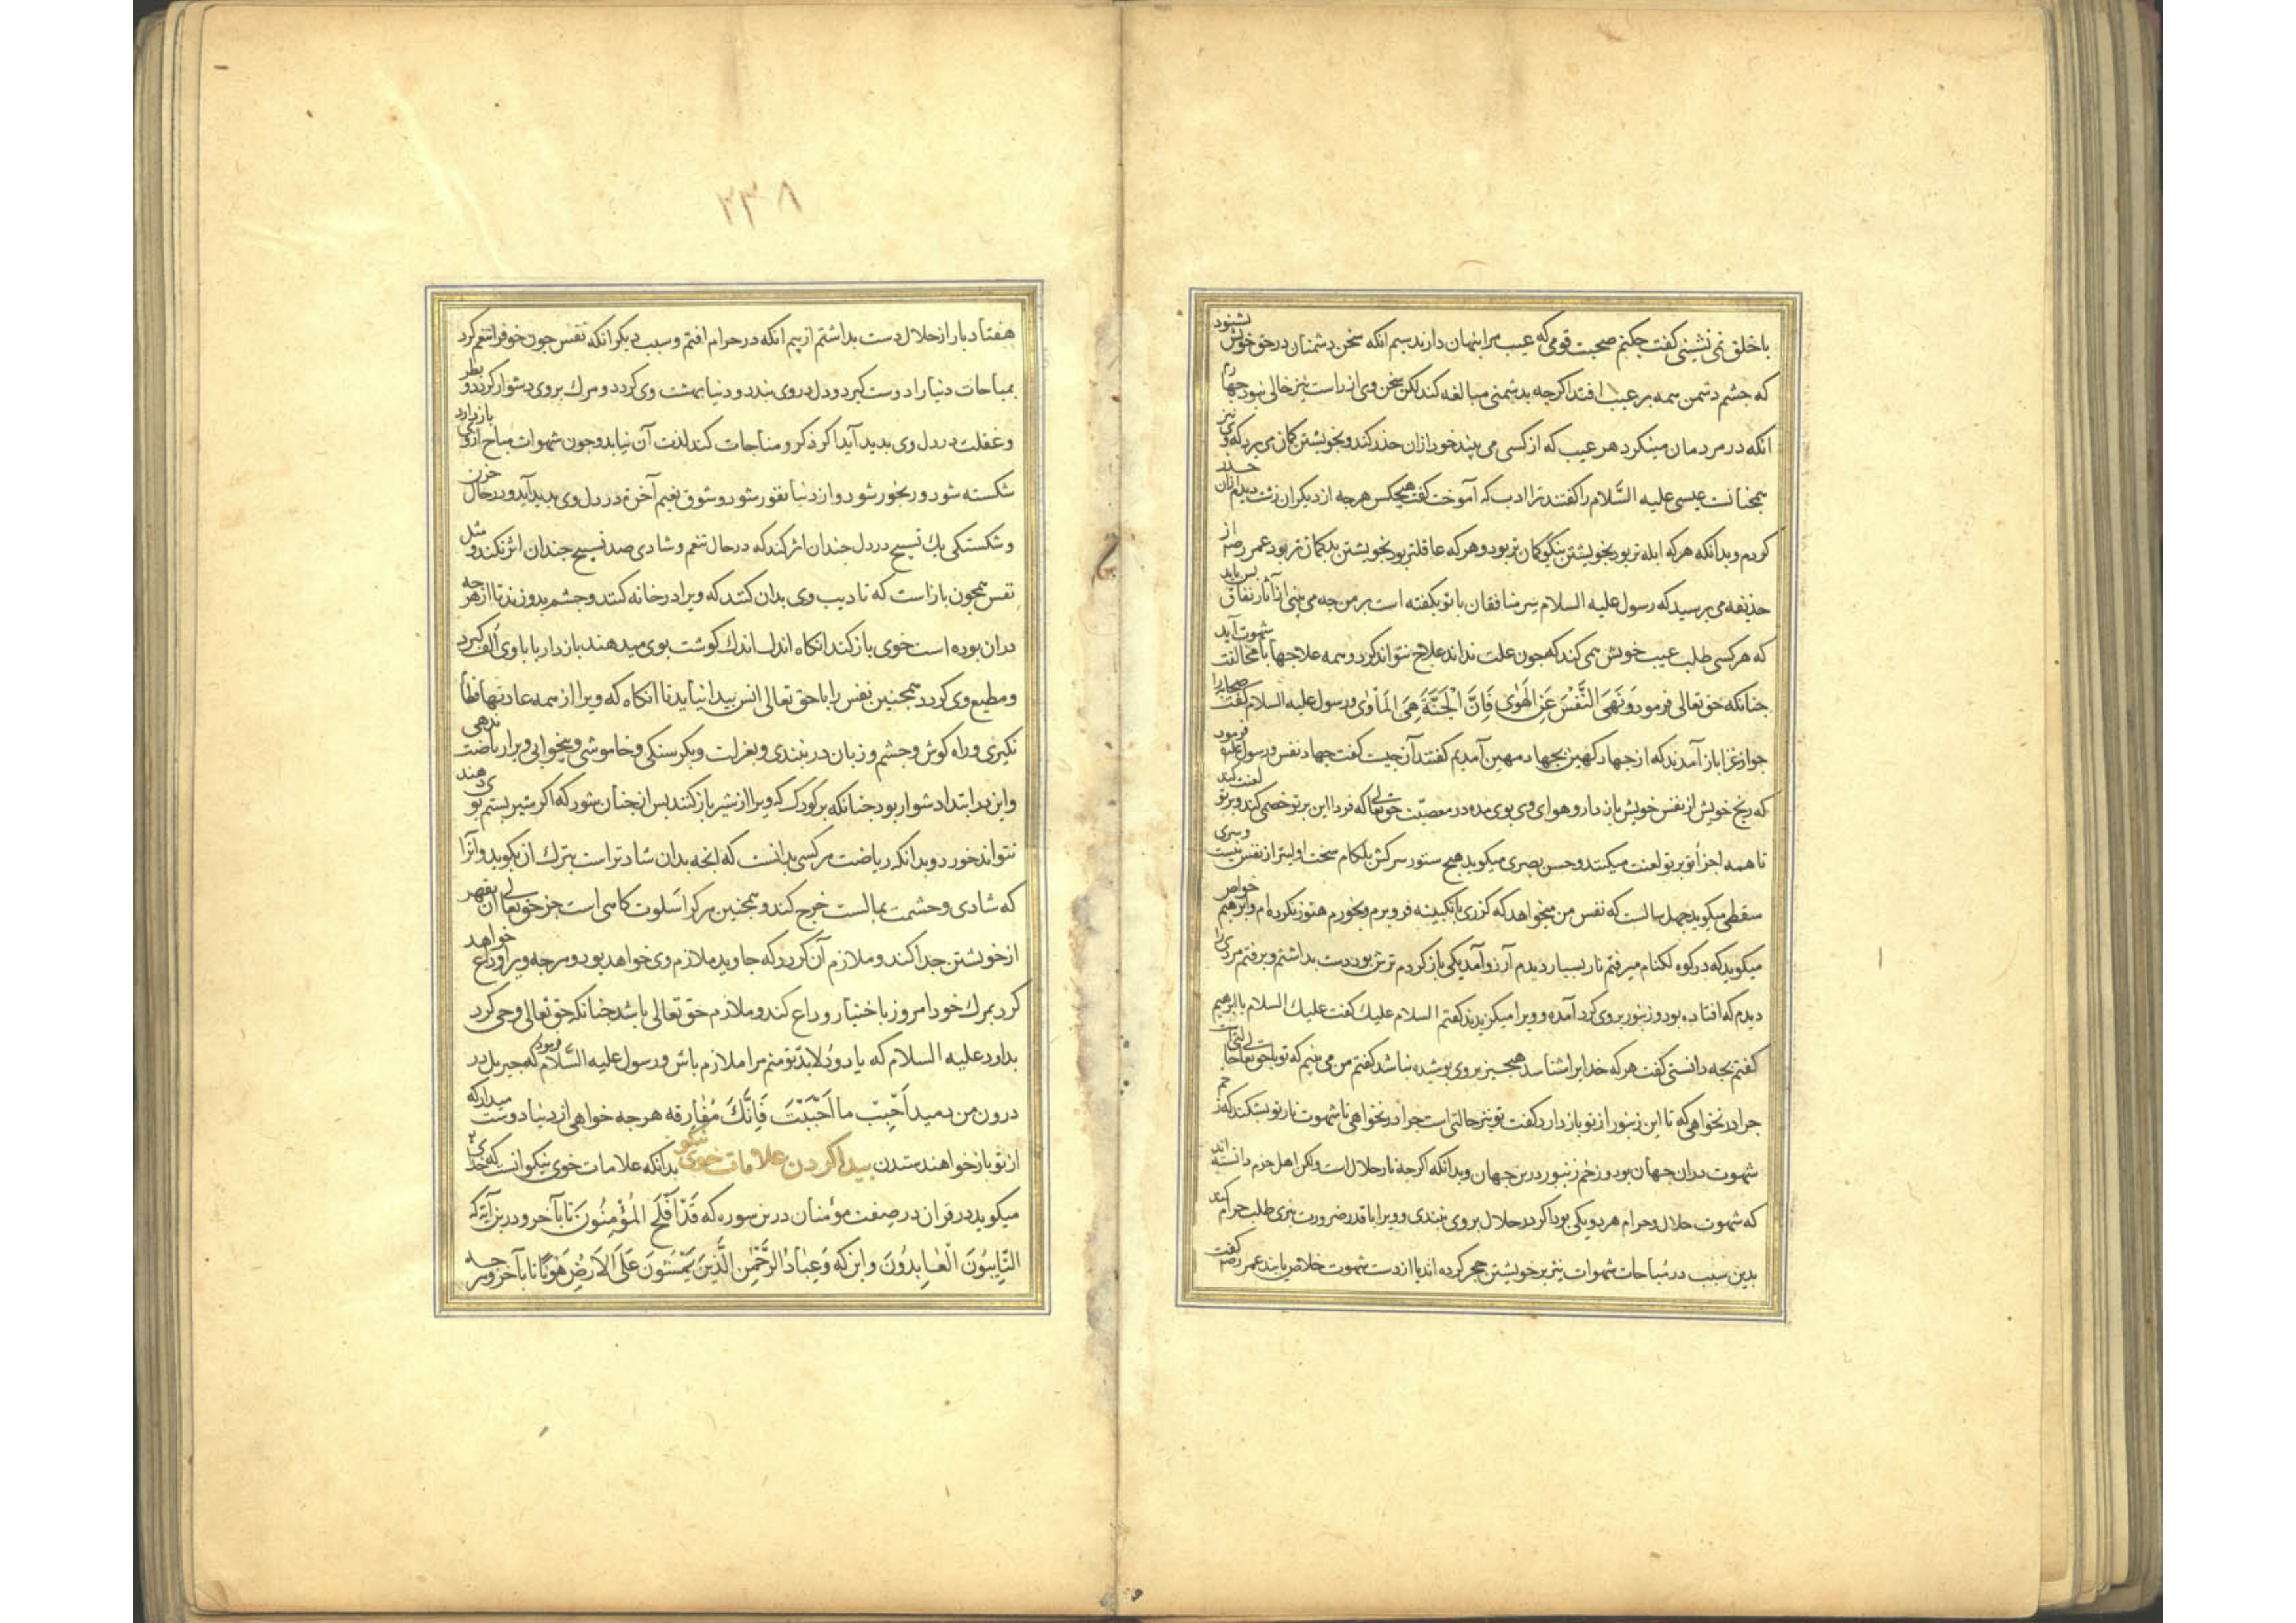 با خلق نمی نشینی گفت چکنم صحبت قومی که عیب مرا پنهان دارند سیم انکه سخن دشمنان در حق خویش بشنود
که چشم دشمن همه بر عیب افتد اکرچه بدشمنی مبالغه کند لکن سخن وی از راست نیز خالی نبود چهارم
انکه در مردمان مینکرد هر عیب که از کسی می بیند خود ازان حذر کند و بخویشتن کمان می برد که وی نیز
همچنانست عیسی علیه السَّلام را کفتند ترا ادب که آموخت کفت هیچکس هرچه از دیکران زشت دیدم ازان حذر
کردم و بدانکه هر که ابله تر بود بخویشتن نیکو کمان تر بود و هر که عاقلتر بود بخویشتن بدکمان تر بود عمر رضه از
حذیفه می پرسید که رسول علیه السلام سر منافقان با تو بکفته است بر من چه می بینی از آثار نفاق پس باید
که هر کسی طلب عیب خویش می کند که چون علت نداند علاج نتواند کرد و همه علاجها با مخالفت شهوت آید
چنانکه حق تعالی فرمود وَنَهَی النَّفْسَ عَنِ الْهَوٰی فَاِنَّ الْجَنَّةَ هِیَ الْمَأوٰی و رسول علیه السلام کفت صحابه را
چو از غزا باز آمدند که از جهاد کهین بجهاد مهین آمدیم کفتند آن چیست کفت جهاد نفس و رسول علیه فرمود
که رنج خویش از نفس خویش باز دار و هوای وی بوی مده در معصیت حق تعالی که فردا این بر تو خصمی کند و بر تو لعنت کند
تا همه اجزاء تو بر تو لعنت میکنند و حسن بصری میکوید هیچ ستور سرکش بلکام سخت اولیتر از نفس نیست و سری
سقطی میکوید چهل سالست که نفس من میخواهد که کزری بانکبینه فرو برم و بخورم هنوز نکرده ام و ابرهیم خواص
میکوید که در کوه لکنام میرفتم نار بسیار دیدم آرزو آمد یکی باز کردم ترش بود دست بداشتم و برفتم مردی را
دیدم که افتاده بود و زنبور بروی کرد آمده و ویرا میکزیدند کفتم السلام علیك کفت علیك السلام یا ابرهیم
کفتم بچه دانستی کفت هر که خدایرا شناسد هیچ چیز بروی پوشیده نباشد کفتم من می بینم که تو با حق تعالی حالتی
چرا درنخواهی که تا این زنبور از تو باز دارد کفت تو نیز حالتی است چرا درنخواهی تا شهوت نار تو بشکند که زخم
شهوت دران جهان بود و زخم زنبور درین جهان و بدانکه اکرچه نار حلال است ولکن اهل حزم دانسته اند
که شهوت حلال و حرام هر دو یکی بود اکر در حلال بروی نبندی و ویرا با قدر ضرورت نبری طلب حرام کند
بدین سبب در مباحات شهوات نیز بر خویشتن حجر کرده اند تا از دست شهوت خلاص یابند عمر رضه کفت
٢٣٨
هفتاد بار از حلال دست بداشتم از بیم انکه در حرام افتم و سبب دیکر انکه نفس چون خو فرا تنعم کرد
بمباحات دنیا را دوست کیرد و دل دروی بندد و دنیا بهشت وی کردد و مرك بروی دشوار کردد و بطر
و غفلت در دل وی بدید آید اکر ذکر و مناجات کند لذت آن نیابد و چون شهوات مباح ازوی باز دارد
شکسته شود و رنجور شود و از دنیا نفور شود و شوق نعیم آخرة در دل وی بدید آید و در حال حزن
و شکستکی یك تسبیح در دل چندان اثر کند که در حال تنعم و شادی صد تسبیح چندان اثر نکند و مثل
نفس همچون باز است که تادیب وی بدان کنند که ویرا در خانه کنند و چشم بدوزند تا از هر چه
دران بوده است خوی باز کند انکاه اندك اندك کوشت بوی میدهند باز دار با با وی الف کیرد
و مطیع وی کردد همچنین نفس را با حق تعالی انس پیدا نیاید تا انکاه که ویرا از همه عادتها فطام
نکیری و راه کوش و چشم و زبان در نبندی و بعزلت و بکرسنکی و خاموشی و بیخوابی ویرا ریاضت ندهی
و این در ابتدا دشوار بود چنانکه بر کودك که ویرا از شیر باز کنند پس از چنان شود که اکر شیر بستم بوی دهند
نتواند خورد و بدانکه ریاضت هر کسی بدانست که انچه بدان شادتر است بترك ان بکوید و آنرا
که شادی و حشمت بمالست خرج کند و همچنین هر کرا سلوت کاهی است جز حق تعالی آن بقهر
از خویشتن جدا کند و ملازم آن کردد که جاوید ملازم وی خواهد بود و هرچه ویرا وداع خواهد
کرد بمرك خود امروز باختیار وداع کند و ملازم حق تعالی باشد چنانکه حق تعالی وحی کرد
بداود علیه السلام که یا داودُ لابدّ تو منم مرا ملازم باش و رسول علیه السَّلام فرمود که جبریل در
درون من دمید اَحْبِبْ ما اَحْبَبْتَ فَاِنَّكَ مُفٰارِقه هرچه خواهی از دنیا دوست میدار که
از تو باز خواهند ستدن پیدا کردن علامات خوی نیکو بدانکه علامات خوی نیکو انست که خدای تع
میکوید در قران در صفت مؤمنان درین سوره که قَدْ اَفْلَحَ الْمُؤْمِنُونَ تا بآخر و درین آیة که
التَّایِبُونَ الْعٰابِدُونَ و این که وَعِبٰادُ الرَّحْمٰنِ الَّذینَ یَمْشُونَ عَلَی الْاَرْضِ هَوْنًا تا بآخر و هر چه